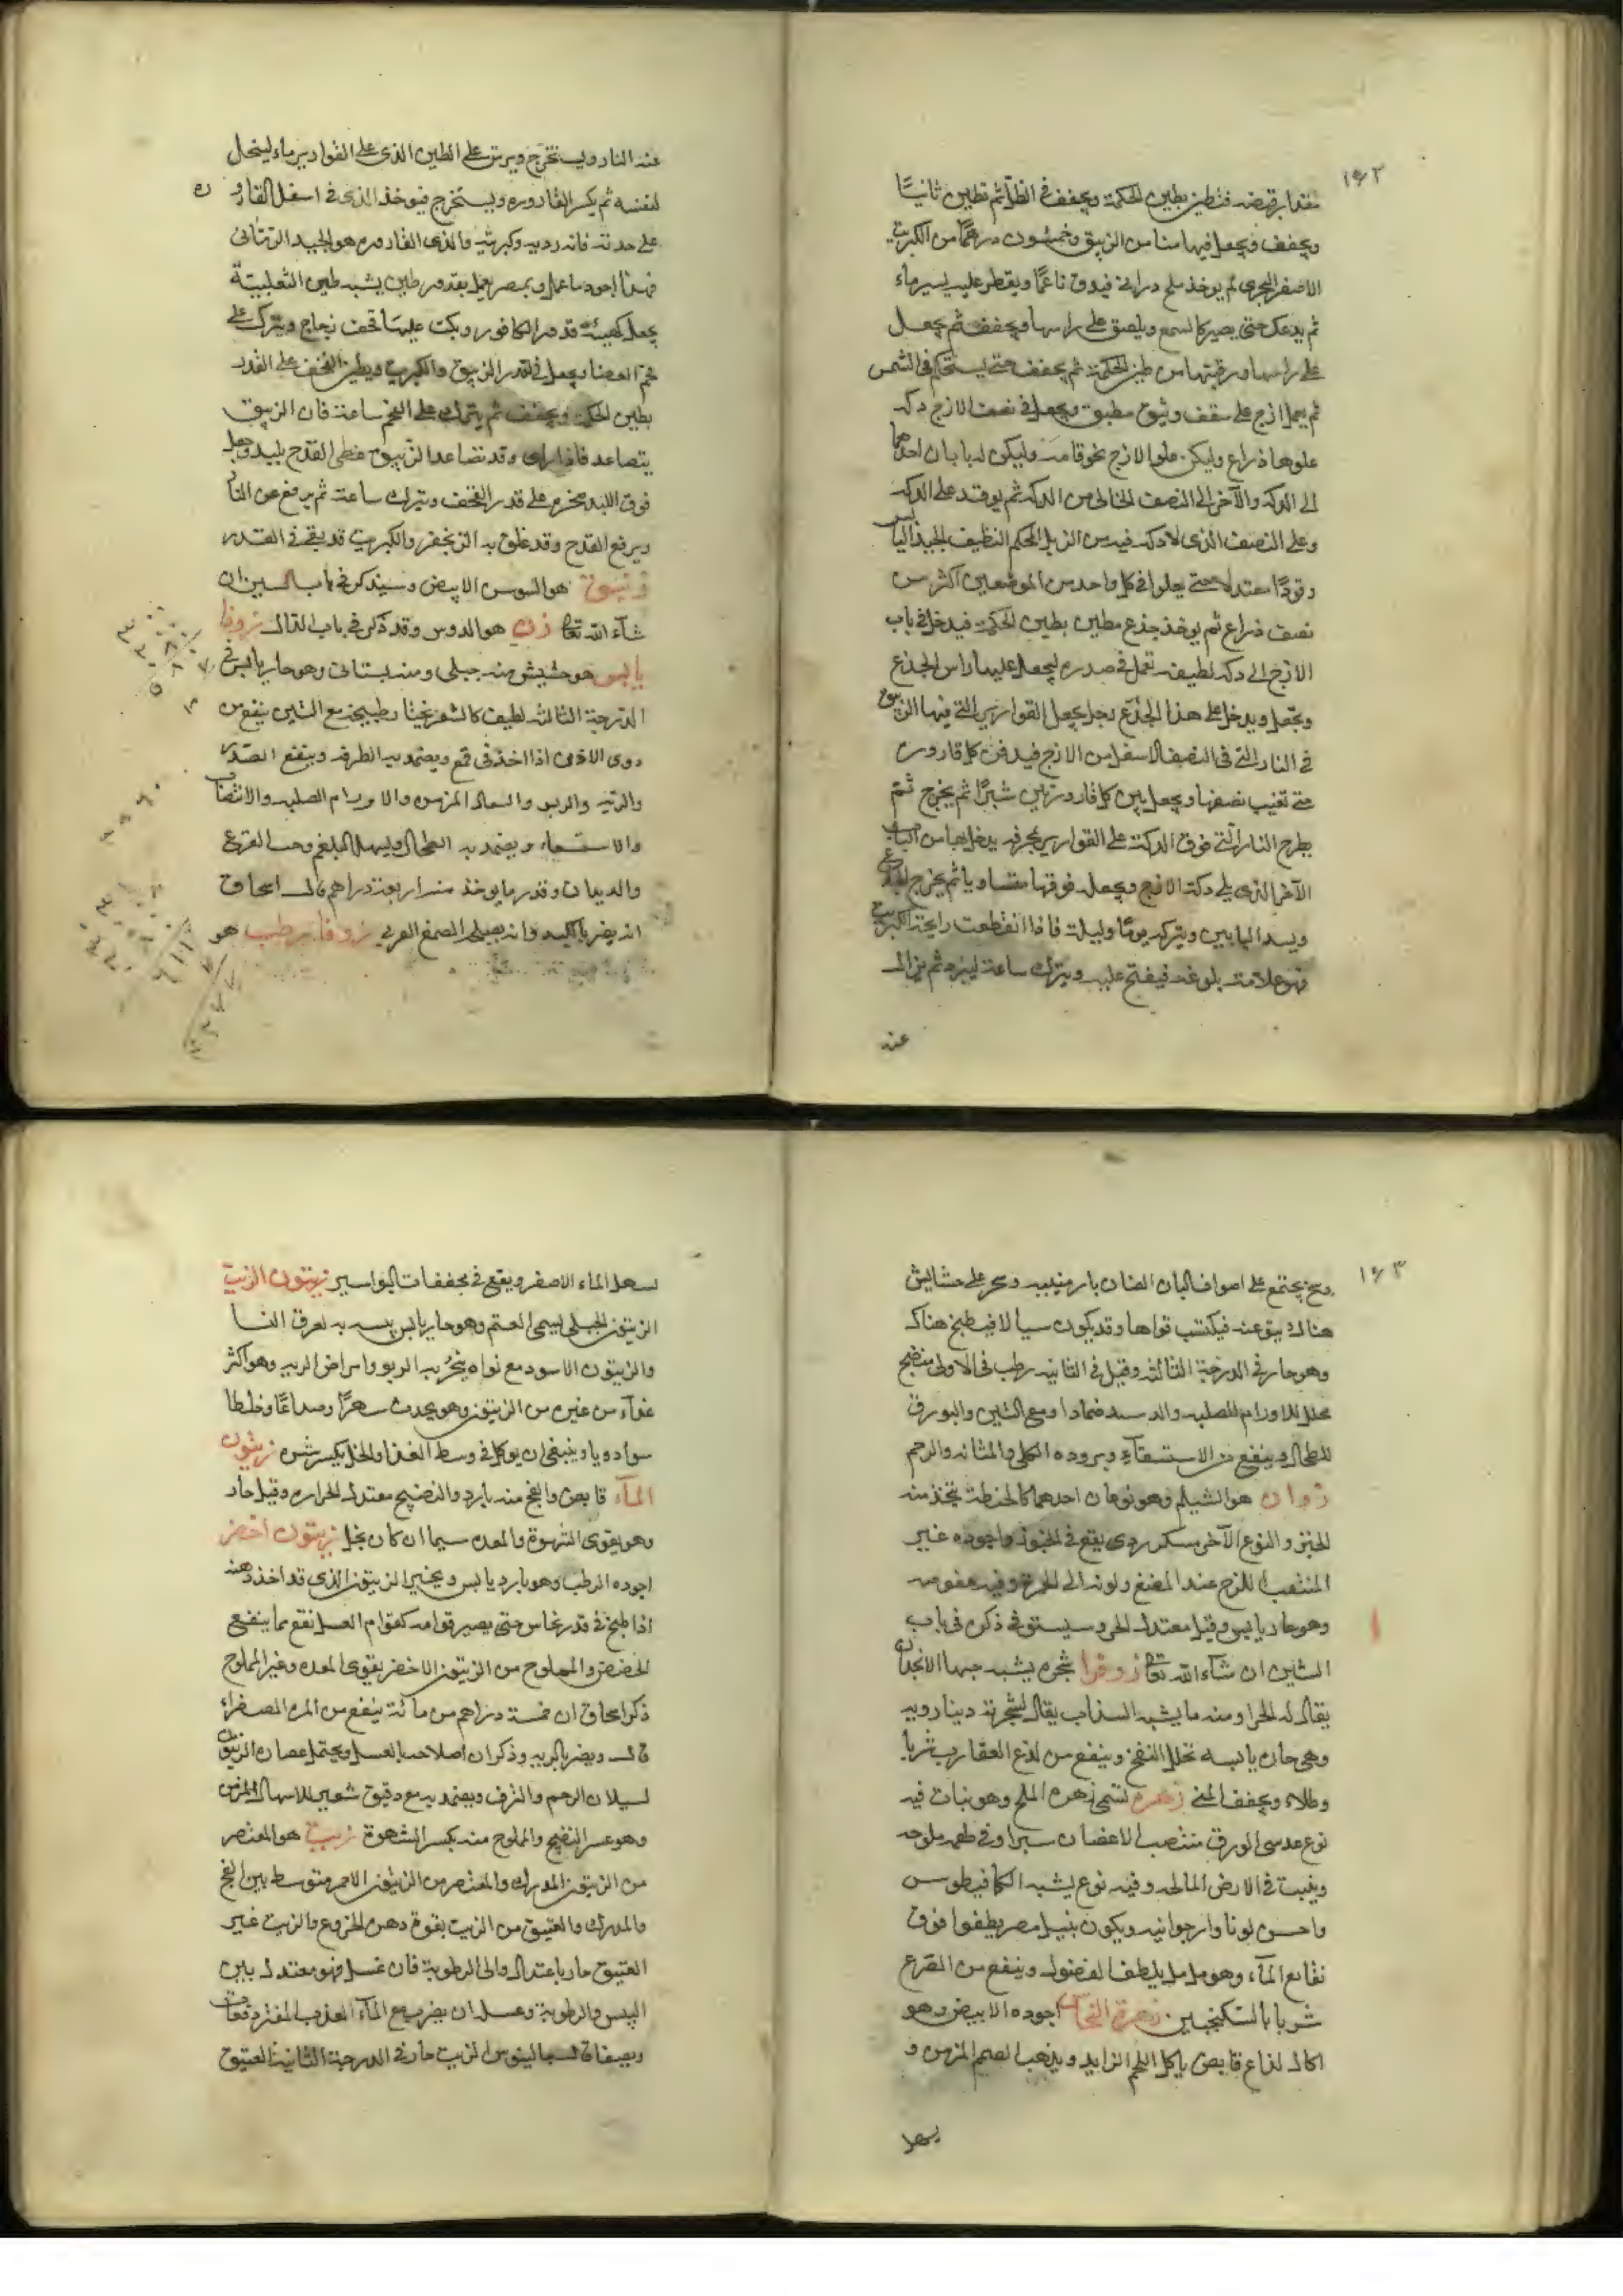 ١٤٢
مقدار قبضه فتطين بطين الحكمة ويجفف فى الظل ثم تطين ثانيًا
ويجفف ويجعل فيها منا من الزيبق وخمسون درهمًا من الكبريت
الاصفر البحرى ثم يوخذ ملح درانى فيدق ناعمًا ويقطر عليه يسير ماء
ثم يدعك حتى يصير كالشمع ويلصق على راسها ويجفف ثم يجعل
على راسها ورقبتها من طين الحكمة ثم يجفف حتى يستحكم فى الشمس
ثم يعمل ازج على سقف وثيق مطبق ويجعل فى نصف الازج دكه
علوها ذراع وليكن علو الازج نحو قامة وليكن له بابان احدهما
الى الدكه والآخر الى النصف الخالى من الدكه ثم يوقد على الدكه
وعلى النصف الذى لا دكه فيه من الزبل المحكم النظيف الجيد اليابس
وقودًا معتدلا حتى يعلوا فى كل واحد من الموضعين اكثر من
نصف ذراع ثم يوخذ جذع مطين بطين الحكمة فيدخل فى باب
الازج الى دكه لطيفه تعمل فى صدره ليجعل عليها راس الجذع
ويجعل ويدخل على هذا الجذع رجل يجعل القوارير التى فيها الزيبق
فى النار التى فى النصف الاسفل من الازج فيدفن كل قاروره
حتى تغيب نصفها ويجعل بين كل قارورتين شبرًا ثم يخرج ثم
يطرح النار التى فوق الدكة على القوارير بمجرفه يدخلها من الباب
الآخر الذى يلى دكة الازج ويجعل فوقها متساويا ثم يخرج الجذع
ويسد البابين ويتركه يومًا وليلة فاذا انقطعت رايحة الكبريت
فهو علامة بلوغه فيفتح عليه ويترك ساعة ليبرد ثم يزال
عنه
عند النار ويستخرج ويرش على الطين الذى على القوارير ماء لينحل
لنفسه ثم يكسر القاروره ويستخرج فيوخذ الذى فى اسفل القاروره
على حدته فانه رديه وكبريته والذى القاروره هو الجيد الزنانى
فهذا اجود ما عمل وبمصر يعمل بقدور طين يشبه طين الثعلبية
يجعل كهيئة قدور الكافور وبكت عليها قحف زجاج ويترك على
فحم الغضا ويجعل فى القدر الزيبق والكبريت ويطين القحف على القدر
بطين الحكمة ويجفف ثم يترك على الفحم ساعة فان الزيبق
يتصاعد فاذا رای وقد تصاعد الزيبق غطى القدح بلبد وجعل
فوق اللبد مخرم على قدر القحف ويترك ساعة ثم يرفع عن النار
ويرفع القدح وقد علق به الزنجفر والكبريت قد بقى فى القدر
زنبق هو السوس الابيض وسيذكر فى باب السين ان
شآء الله تعالى زن هو الدوس وقد ذكر فى باب الدال زوفا
يابس هو حشيش منه جبلى ومنه بستانى وهو حار يابس فى
الدرجة الثالثه لطيف كالشعر بخيثا وطبيخه مع التين ينفع من
دوى الاذن اذا اخذ فى قمع ويضمد به الطرفه وينفع الصدر
والريه والربو والسعال المزمن والاورام الصلبه والانتصاب
والاستسقاء ويضمد به الطحال ويسهل البلغم وحب القرع
والديدان وقدر ما يوخذ منه اربعة دراهم قال اسحاق
انه يضر بالكبد وانه يصلحه الصمغ العربى زوفا رطب هو
١٤٣
وسخ يجتمع على اصواف البان الضان بارمينيه وبحر على حشايش
هناك يتوعيه فيكتسب قواها وقد يكون سيالا فيطبخ هناك
وهو حار فى الدرجة الثالثه وقيل فى الثانيه رطب فى الاولى منضج
محلل للاورام الصلبه والدسه ضمادا ومع التين والبورق
للطحال وينفع من الاستسقاء وبروده الكلى والمثانه والرحم
زوان هو الشيلم وهو نوعان احدهما كالحنطة تتخذ منه
الخبز والنوع الآخر مسكر ردى يقع فى الخبز واجوده غير
المنثقب اللزج عند المضغ ولونه الى الحمرة وفيه عفوصه
وهو حار يابس وقيل معتدل الحر وسيستوفى ذكره فى باب
الشين ان شآء الله تعالى زوفرا شجره يشبه حبها الانجدان
يقال له الحزا ومنه ما يشبه السذاب يقال لشجرته دينارويه
وهى حاره يابسه تحلل النفخ وينفع من لذع العقارب شربا
وطلاء ويجفف المنى زهره تسمى زهره الملح وهو نبات فيه
نوع عدسى الورق منتصب الاغصان سبرا وفى طعمه ملوحه
وينبت فى الارض المالحه وفيه نوع يشبه الكمافيطوس
واحسن لونا وارجوانيه ويكون بنيل مصر يطفوا فوق
نقايع المآء وهو مدمل يلطف الفضول وينفع من القرع
شربا بالسكنجبين زهرة النحاس اجوده الابيض وهو
اكال لذاع قابض ياكل اللحم الزايد ويذهب الصمم المزمن و
يسهل
يسهل الماء الاصفر ويقع فى مجففات البواسير زيتون الزيت
الزيتون الجبلى يسمى العتم وهو حار يابس يسه به لعرق النسا
والزيتون الاسود مع نواه يبخر به الربو وامراض الريه وهو اكثر
غذآء من غيره من الزيتون وهو يحدث سهرًا وصداعًا وخلطا
سوادويا وينبغى ان يوكل فى وسط الغذا والخل يكسر شره زيتون
المآء قابض والفج منه بارد والنضيج معتدل الحراره وقيل حار
وهو يقوى الشهوة والمعده سيما ان كان بخل زيتون اخضر
اجوده الرطب وهو بارد يابس ويختير الزيتون الذى قد اخذ دهنه
اذا طبخ فى قدر نحاس حتى يصير قوامه كقوام العسل نفع مما ينفع
الحضض والمملوح من الزيتون الاخضر يقوى المعده وغير المملوح
ذكر اسحاق ان خمسة دراهم من مائة ينفع من المره الصفراء
قال ويضر بالريه وذكر ان اصلاحه بالعسل ويحتمل عصاره الزيتون
لسيلان الرحم والنزف ويضمد به مع دقيق شعير للاسهال المزمن
وهو عسر النضيج والمملوح منه يكسر الشهوة زيت هو المعتصر
من الزيتون المدرك والمعتصر من الزيتون الاحمر متوسط بين الفج
والمدرك والعتيق من الزيت بقوة دهن الخروع والزيت غير
العتيق حار باعتدال والى الرطوبة فان غسل فهو معتدل بين
اليبس والرطوبة وغسله ان يضرب مع المآء العذب المفتر دفعات
ويصفا قال جالينوس الزيت حار فى الدرجة الثانية العتيق